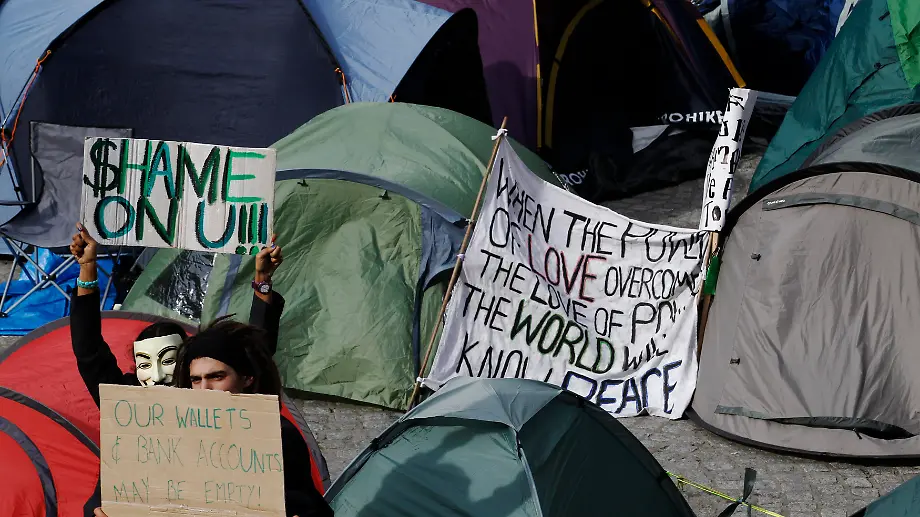 $HAME
ON U!!!!
OUR WALLETS
& BANK ACCOUNTS
MAY BE EMPTY!
WHEN THE POWER
OF LOVE OVERCOMES
THE LOVE OF
THE WORLD WILL
KNOW PEACE